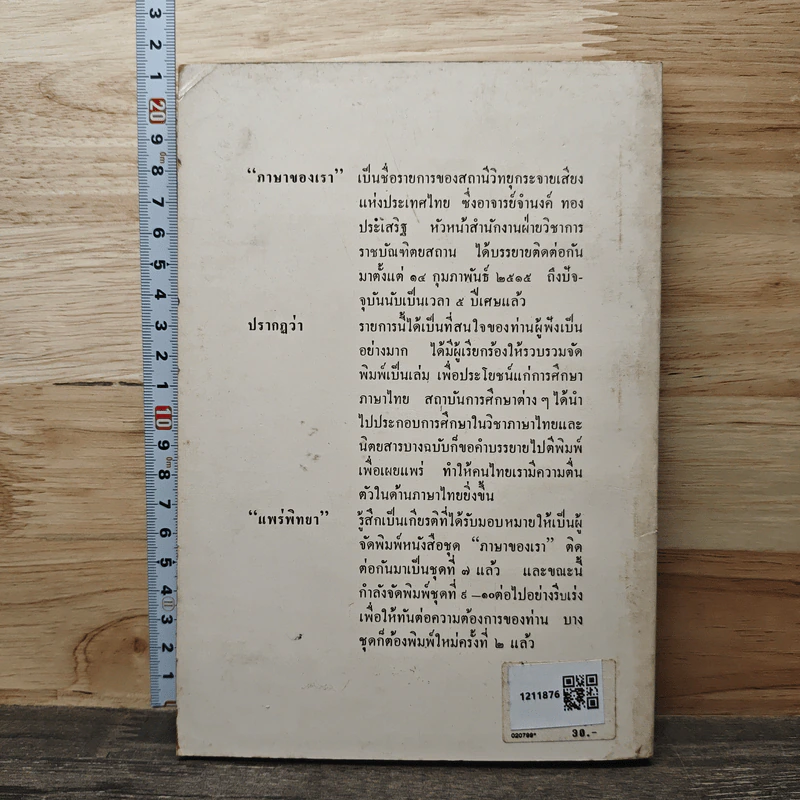 “ภาษาของเรา” เป็นชื่อรายการของสถานีวิทยุกระจายเสียง
แห่งประเทศไทย ซึ่งอาจารย์จำนงค์ ทอง
ประเสริฐ หัวหน้าสำนักงานฝ่ายวิชาการ
ราชบัณฑิตยสถาน ได้บรรยายติดต่อกัน
มาตั้งแต่ ๑๔ กุมภาพันธ์ ๒๕๑๕ ถึงปัจ-
จุบันนับเป็นเวลา ๕ ปีเศษแล้ว
ปรากฏว่า รายการนี้ได้เป็นที่สนใจของท่านผู้ฟังเป็น
อย่างมาก ได้มีผู้เรียกร้องให้รวบรวมจัด
พิมพ์เป็นเล่ม เพื่อประโยชน์แก่การศึกษา
ภาษาไทย สถาบันการศึกษาต่าง ๆ ได้นำ
ไปประกอบการศึกษาในวิชาภาษาไทยและ
นิตยสารบางฉบับก็ขอคำบรรยายไปตีพิมพ์
เพื่อเผยแพร่ ทำให้คนไทยเรามีความตื่น
ตัวในด้านภาษาไทยยิ่งขึ้น
“แพร่พิทยา” รู้สึกเป็นเกียรติที่ได้รับมอบหมายให้เป็นผู้
จัดพิมพ์หนังสือชุด “ภาษาของเรา” ติด
ต่อกันมาเป็นชุดที่ ๗ แล้ว และขณะนี้
กำลังจัดพิมพ์ชุดที่ ๙ –๑๐ต่อไปอย่างรีบเร่ง
เพื่อให้ทันต่อความต้องการของท่าน บาง
ชุดก็ต้องพิมพ์ใหม่ครั้งที่ ๒ แล้ว
1211876
020798^ 30.-
3
2
1
20
9
8
7
6
5
4
3
2
1
10
9
8
7
6
5
4
3
2
1